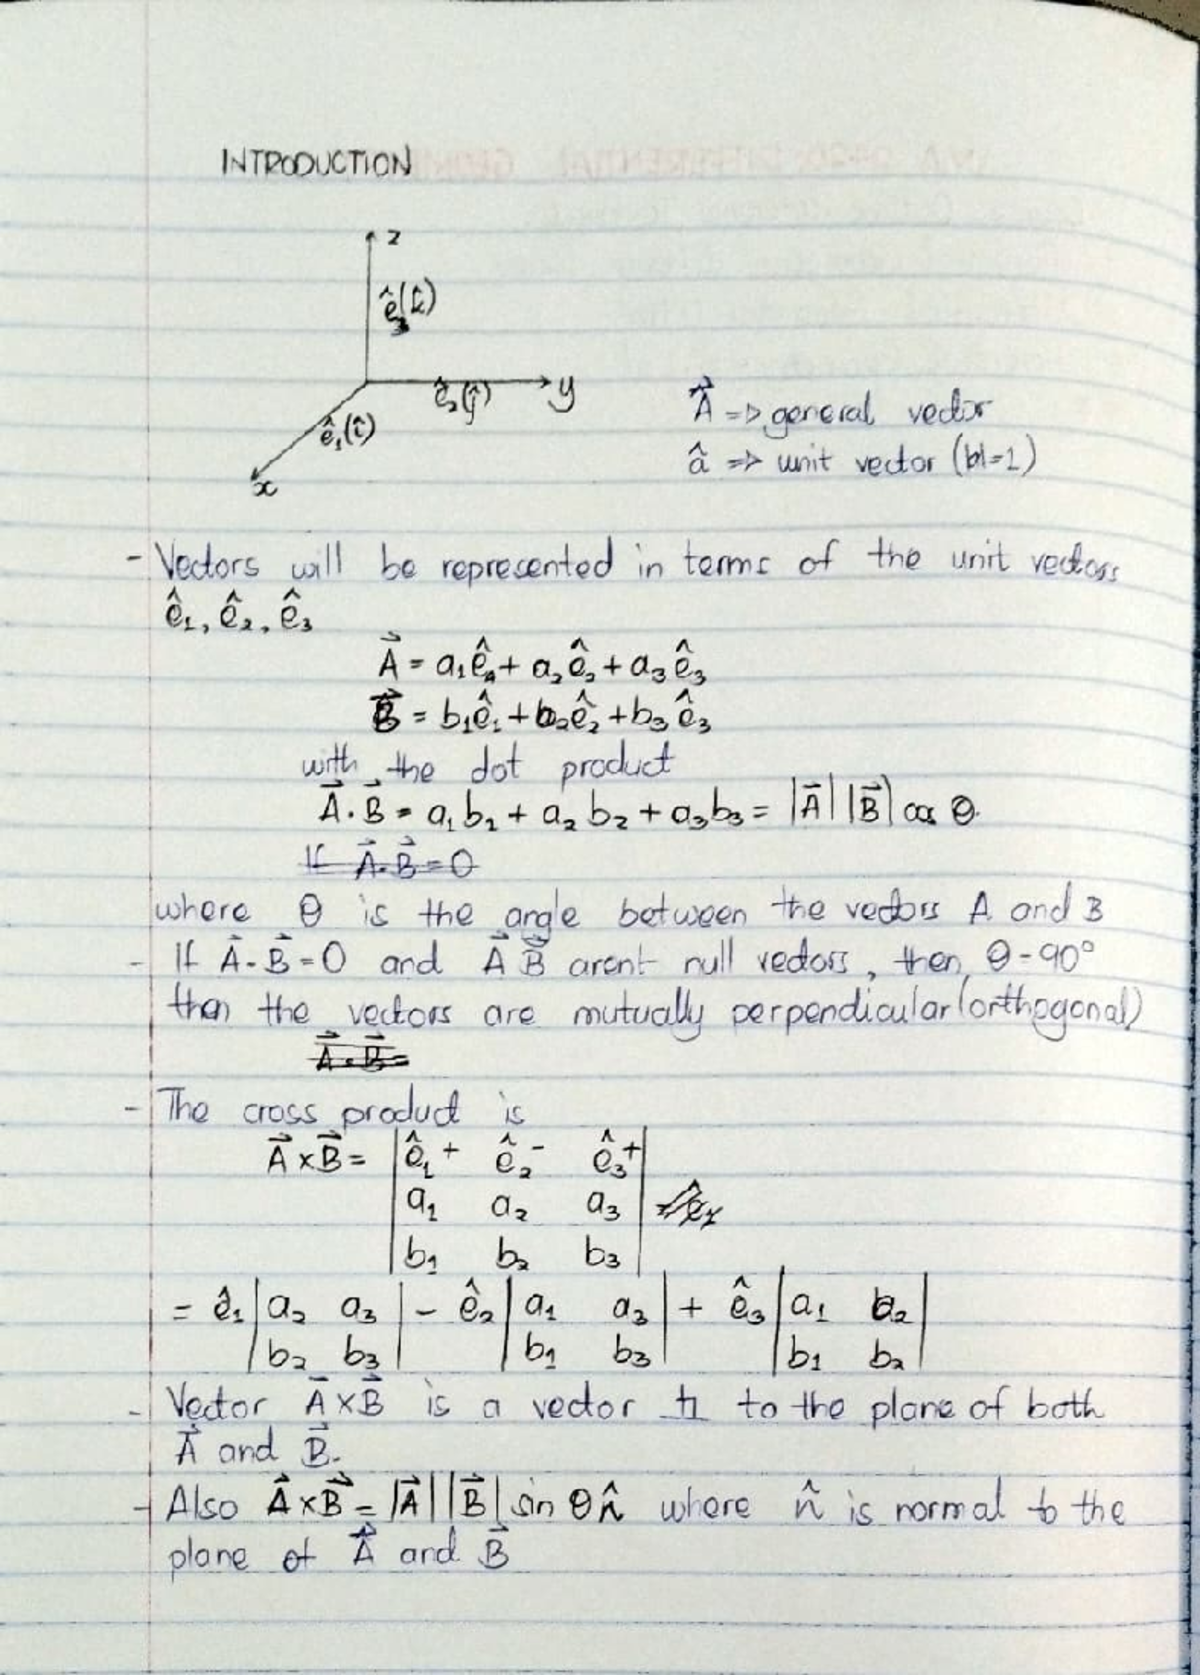 INTRODUCTION
z
ê₃(k̂)
ê₂(ĵ) y
ê₁(î)
x
A⃗ => general vector
â => unit vector (|a|=1)
- Vectors will be represented in terms of the unit vectors
ê₁, ê₂, ê₃
A⃗ = a₁ê₁ + a₂ê₂ + a₃ê₃
B⃗ = b₁ê₁ + b₂ê₂ + b₃ê₃
with the dot product
A⃗ . B⃗ = a₁b₁ + a₂b₂ + a₃b₃ = |A⃗| |B⃗| cos θ
If A⃗. B⃗ = 0
where θ is the angle between the vectors A and B
- If A⃗. B⃗ = 0 and A⃗ B⃗ arent null vectors, then θ = 90°
then the vectors are mutually perpendicular (orthogonal)
A⃗ . B⃗ =
- The cross product is
A⃗ x B⃗ = | ê₁⁺ ê₂⁻ ê₃⁺ |
| a₁ a₂ a₃ |
| b₁ b₂ b₃ |
= ê₁ | a₂ a₃ | - ê₂ | a₁ a₃ | + ê₃ | a₁ a₂ |
| b₂ b₃ | | b₁ b₃ | | b₁ b₂ |
- Vector A⃗ x B⃗ is a vector to the plane of both
A⃗ and B⃗.
- Also A⃗ x B⃗ = |A⃗| |B⃗| sin θ n̂ where n̂ is normal to the
plane of A⃗ and B⃗